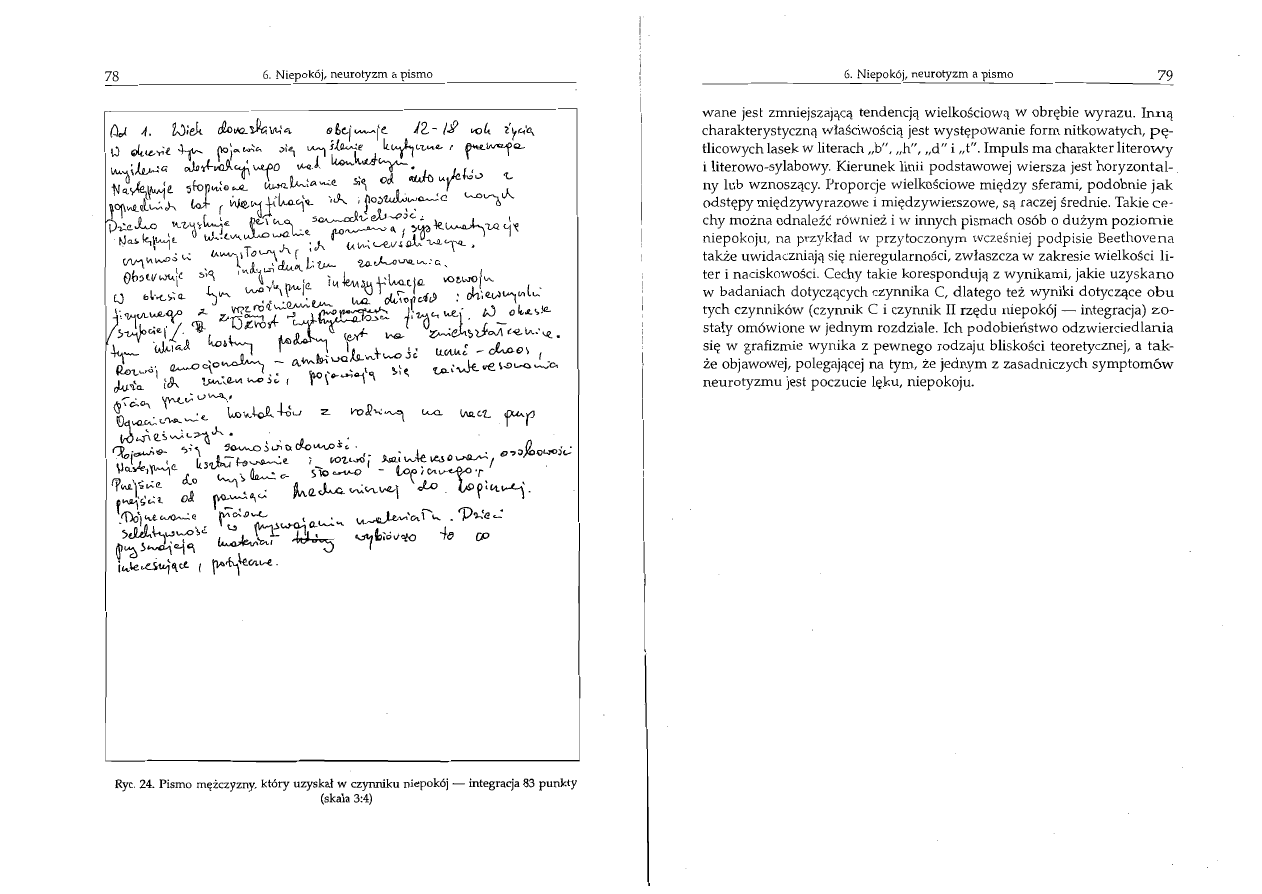 78
6. Niepokój, neurotyzm a pismo
Ad 1. Wiek dorastania obejmuje 12-18 rok życia
W okresie tym pojawia się myślenie krytyczne, przewaga
myślenia abstrakcyjnego nad konkretnym.
Następuje stopniowe uwalnianie się od autorytetów z
poprzednich lat, weryfikacja ich i poszukiwanie nowych
Dziecko uzyskuje pełną samodzielność.
Następuje ukierunkowanie poznania, systematyzację
czynności umysłowych, ich uniwersalizacja.
Obserwuje się indywidualizm zachowania.
W okresie tym następuje intensyfikacja rozwoju
fizycznego z wyróżnieniem na chłopców i dziewczynki
/szybciej/. Wzrost wytrzymałości fizycznej. W okresie
tym układ kostny podatny jest na zniekształcenie.
Rozwój emocjonalny - ambiwalentność uczuć - chaos,
duża ich zmienność, pojawiają się zainteresowania
płcią przeciwną.
Ograniczanie kontaktów z rodziną na rzecz grup
rówieśniczych.
Pojawia się samoświadomość.
Następuje kształtowanie i rozwój zainteresowań, osobowości
Przejście do myślenia słowno - logicznego,
przejście od pamięci mechanicznej do logicznej.
Dojrzewanie płciowe
Selektywność w przyswajaniu materiału. Dzieci
przyswajają materiał który wybiórczo to co
interesujące, pożyteczne.
Ryc. 24. Pismo mężczyzny, który uzyskał w czynniku niepokój — integracja 83 punkty
(skala 3:4)
6. Niepokój, neurotyzm a pismo
79
wane jest zmniejszającą tendencją wielkościową w obrębie wyrazu. Inną
charakterystyczną właściwością jest występowanie form nitkowatych, pę-
tlicowych lasek w literach „b”, „h”, „d” i „t”. Impuls ma charakter literowy
i literowo-sylabowy. Kierunek linii podstawowej wiersza jest horyzontal-
ny lub wznoszący. Proporcje wielkościowe między sferami, podobnie jak
odstępy międzywyrazowe i międzywierszowe, są raczej średnie. Takie ce-
chy można odnaleźć również i w innych pismach osób o dużym poziomie
niepokoju, na przykład w przytoczonym wcześniej podpisie Beethovena
także uwidaczniają się nieregularności, zwłaszcza w zakresie wielkości li-
ter i naciskowości. Cechy takie korespondują z wynikami, jakie uzyskano
w badaniach dotyczących czynnika C, dlatego też wyniki dotyczące obu
tych czynników (czynnik C i czynnik II rzędu niepokój — integracja) zo-
stały omówione w jednym rozdziale. Ich podobieństwo odzwierciedlania
się w grafizmie wynika z pewnego rodzaju bliskości teoretycznej, a tak-
że objawowej, polegającej na tym, że jednym z zasadniczych symptomów
neurotyzmu jest poczucie lęku, niepokoju.